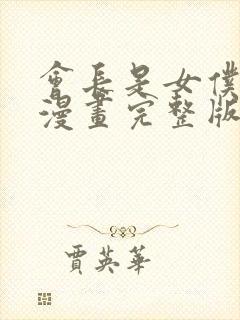 會長是女僕
漫畫完整版
賈英華